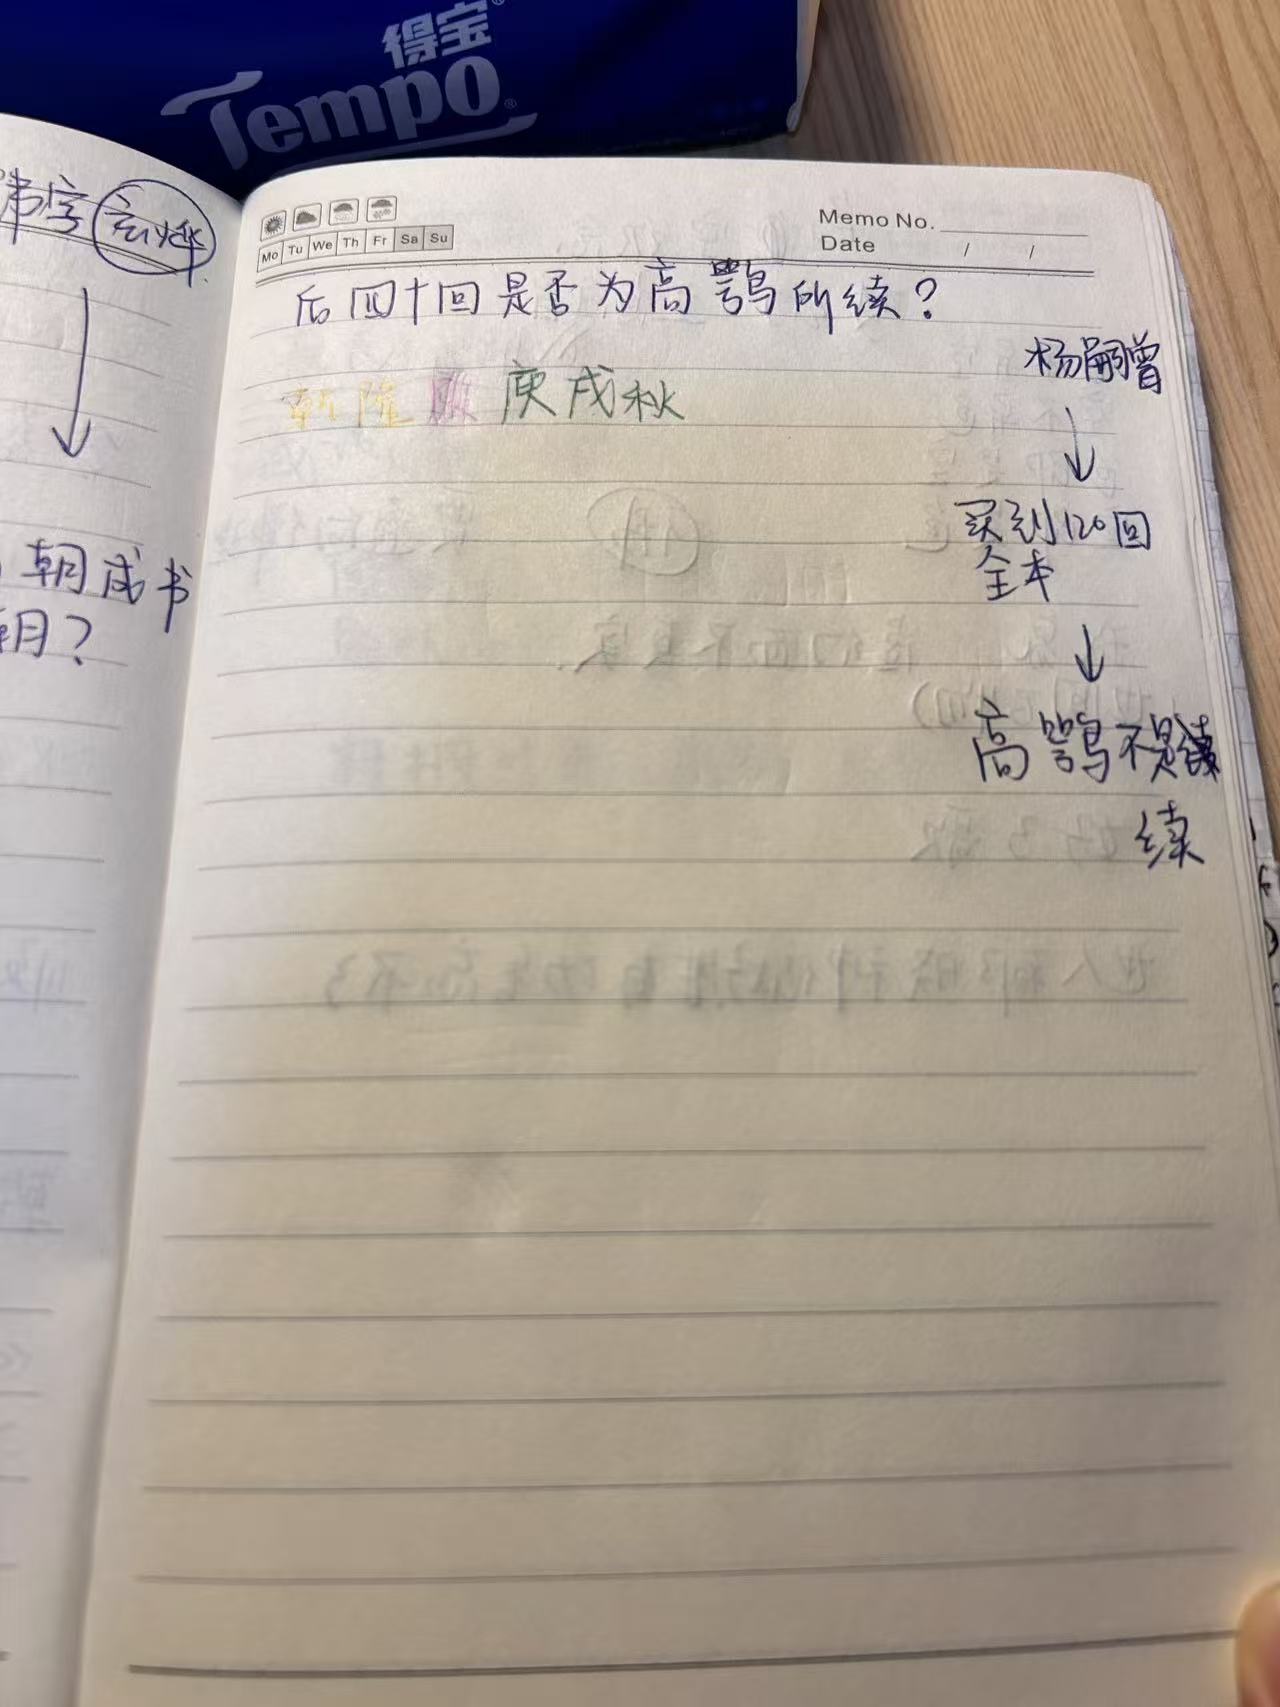 得宝
Tempo
玄烨
朝成书
朝?
Memo No.
Date / /
Mo Tu We Th Fr Sa Su
后四十回是否为高鹗所续?
乾隆 庚戌秋
杨嗣曾
↓
买到120回
全本
↓
高鹗不是续
续